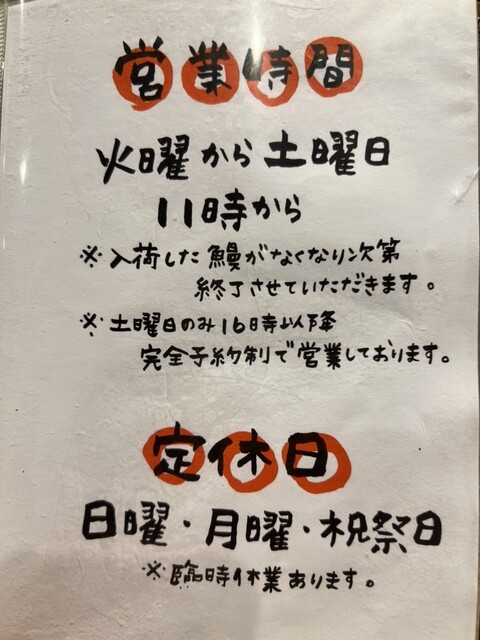 営業時間
火曜日から土曜日
11時から
※入荷した鰻がなくなり次第
終了させていただきます。
※土曜日のみ16時以降
完全予約制で営業しております。
定休日
日曜・月曜・祝祭日
※臨時休業あります。